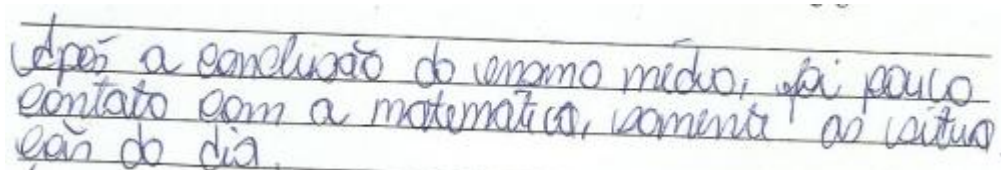 Após a conclusão do ensino médio, foi pouco
contato com a matemática, somente as situa
ções do dia.